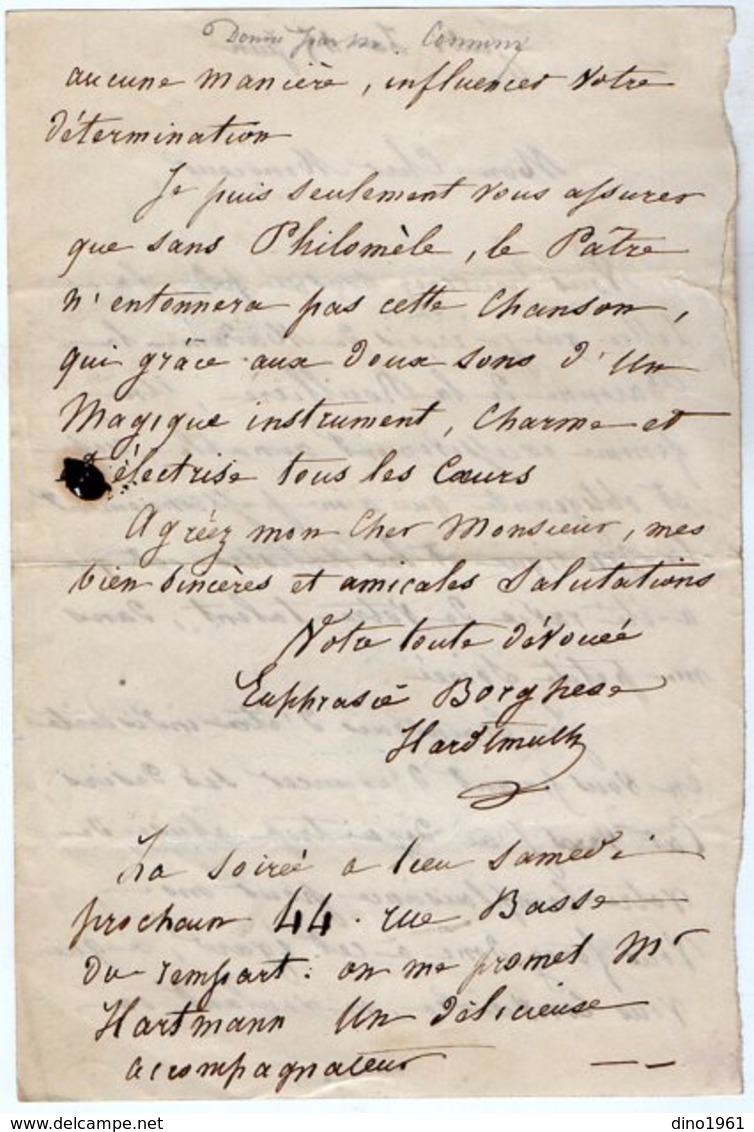 Donné par
aucune manière, influencer votre
détermination
Je puis seulement vous assurer
que sans Philomèle, le Pâtre
n'entonnera pas cette chanson,
qui grâce aux doux sons d'un
Magique instrument, charme et
électrise tous les Cœurs
Agréez mon Cher Monsieur, mes
bien sincères et amicales salutations
Votre toute dévouée
Euphrasie Borghese
Hardtmuth
La soirée a lieu samedi
prochain 44 . rue Basse
du rempart : on me promet Mr
Hartmann un délicieuse
accompagnateur
dino1961